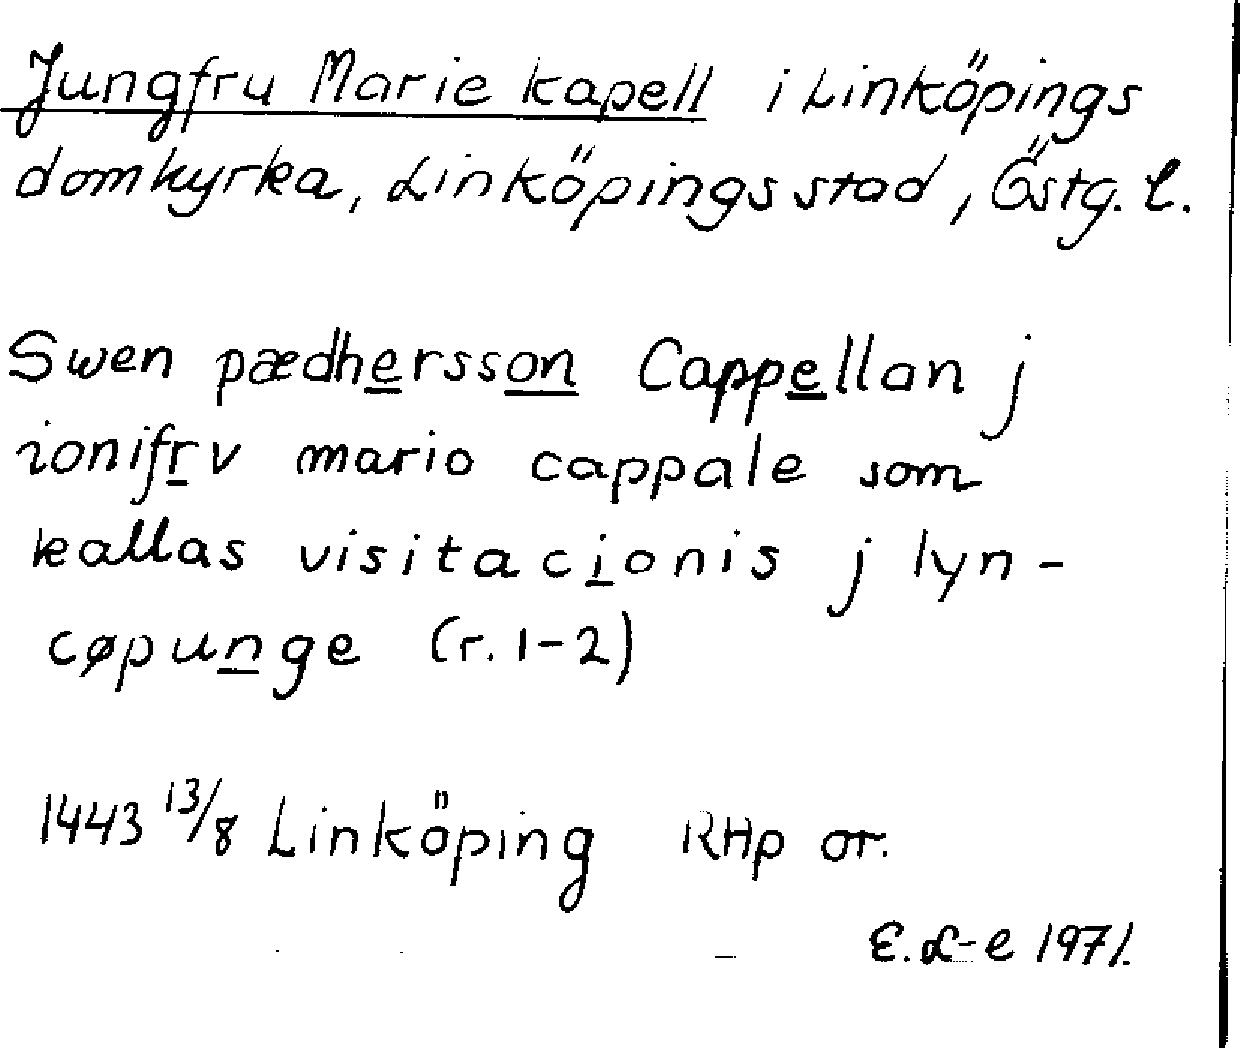 Jungfru Marie kapell i Linköpings
domkyrka, Linköpings stad, Östg. l.
Swen pædhersson Cappellan j
ionifrv mario cappale som
kallas visitacionis j lyn-
cøpunge (r. 1-2)
1443 13/8 Linköping RHp or.
E. L-e 1971.